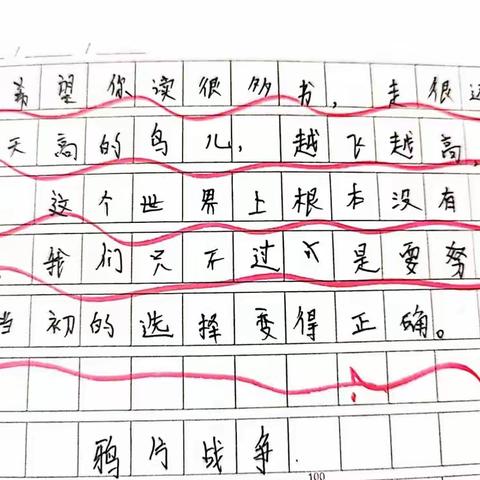 希望你读很多书，走很远
天高的鸟儿，越飞越高，
这个世界上根本没有
我们只不过是要努
当初的选择变得正确。
鸦片战争.
100